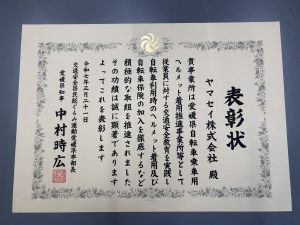 表彰状
ヤマセイ株式会社 殿
貴事業所は愛媛県自転車乗車用
ヘルメット着用推進事業所等として
従業員に対する交通安全教育を実践し
自転車利用時のヘルメット着用及び
自転車保険の加入を徹底するなど
積極的な取組を推進されました
その功績は誠に顕著であります
よってこれを表彰します
令和七年三月二十一日
交通安全県民総ぐるみ運動愛媛県本部長
愛媛県知事 中村時広